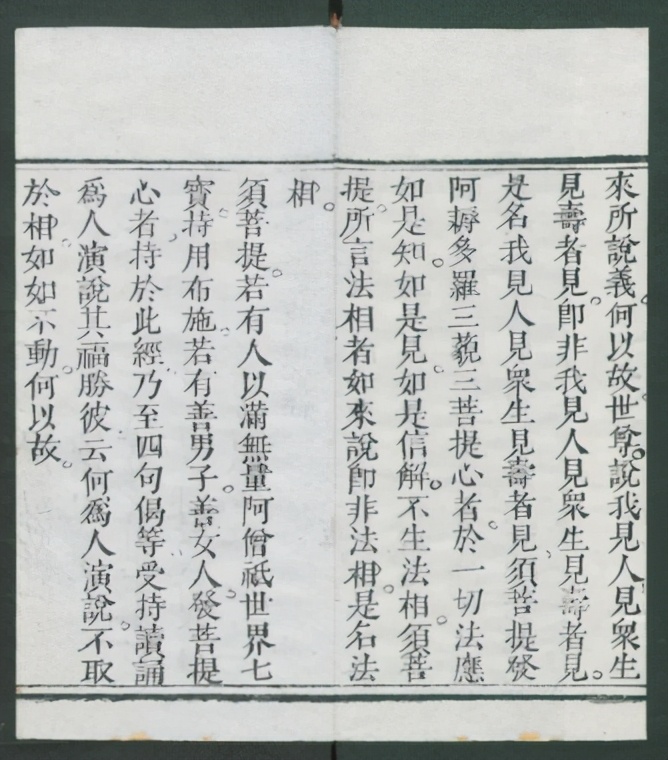 來所說義。何以故。世尊。說我見人見衆生
見壽者見。卽非我見人見衆生見壽者見。
是名我見人見衆生見壽者見、須菩提發
阿耨多羅三藐三菩提心者。於一切法應
如是知。如是見。如是信解。不生法相。須菩
提。所言法相者如來說卽非法相。是名法
相。
須菩提。若有人以滿無量阿僧祇世界七
寶。持用布施、若有善男子。善女人。發菩提
心者、持於此經、乃至四句偈等受持讀誦
爲人演說其福勝彼云何爲人演說。不取
於相。如如不動。何以故。